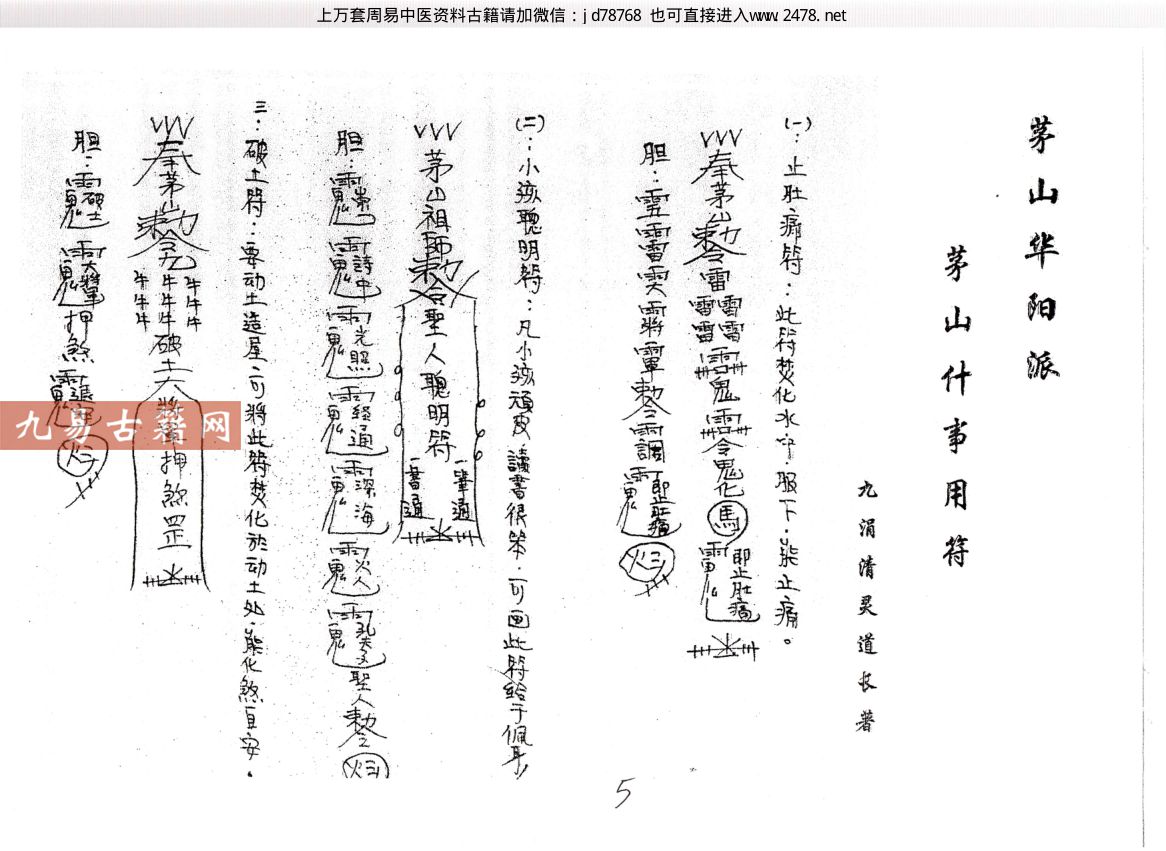 上万套周易中医资料古籍请加微信：jd78768 也可直接进入www.2478.net
茅山华阳派
茅山什事用符
九涓清灵道长著
(一)：止肚痛符：此符焚化水中．服下．能止痛。
奉茅山勅令雷
雷雷
雷雷
鬼
令鬼化馬
即止肚痛
胆：
勅令
即止肚痛
(二)：小孩聰明符：凡小孩頑皮 讀書很笨．可画此符給于佩身
茅山祖師勅令聖人聰明符
一筆通
一書通
胆：
詩中
光照
经通
深海
火人
孔夫子
聖人勅令
三：破土符：要动土造屋．可將此符焚化於动土处．能化煞自安．
奉茅山勅令
牛牛牛
牛牛牛
牛牛牛
破土大將軍押煞罡
胆：
破土
大將軍
押煞
九易古籍网
5